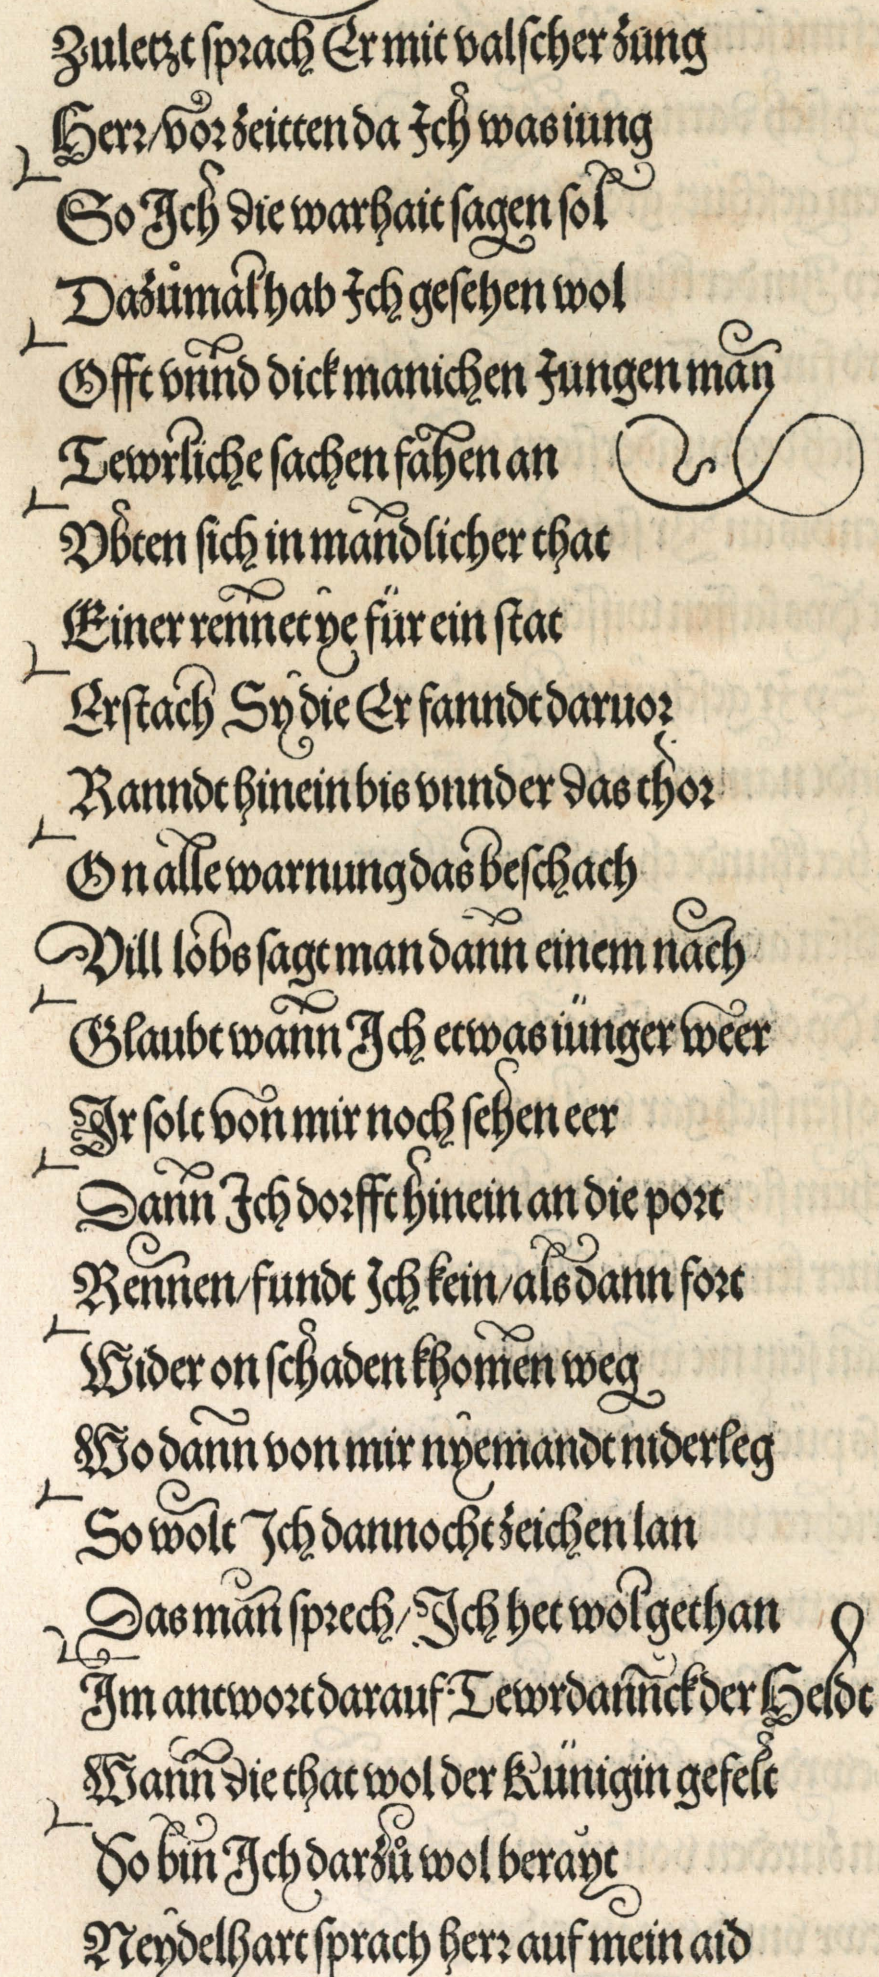 Zuletzt sprach Er mit valscher zung
Herr/vor zeitten da Ich was iung
So Ich die warhait sagen sol
Dazůmal hab Ich gesehen wol
Offt vnnd dick manichen Jungen man
Tewrliche sachen fahen an
Vbten sich in mandlicher that
Einer rennet ye für ein stat
Erstach Sy die Er fanndt daruor
Ranndt hinein bis vnnder das thor
On alle warnung das beschach
Vill lobs sagt man dann einem nach
Glaubt wann Ich etwas iünger weer
Ir solt von mir noch sehen eer
Dann Ich dorfft hinein an die port
Rennen/fundt Ich kein/als dann fort
Wider on schaden khomen weg
Wo dann von mir nyemandt niderleg
So wolt Ich dannocht zeichen lan
Das man sprech/Ich het wol gethan
Im antwort darauf Tewrdannck der Heldt
Wann die that wol der Künigin gefelt
So bin Ich darzů wol berayt
Neydelhart sprach herr auf mein aid